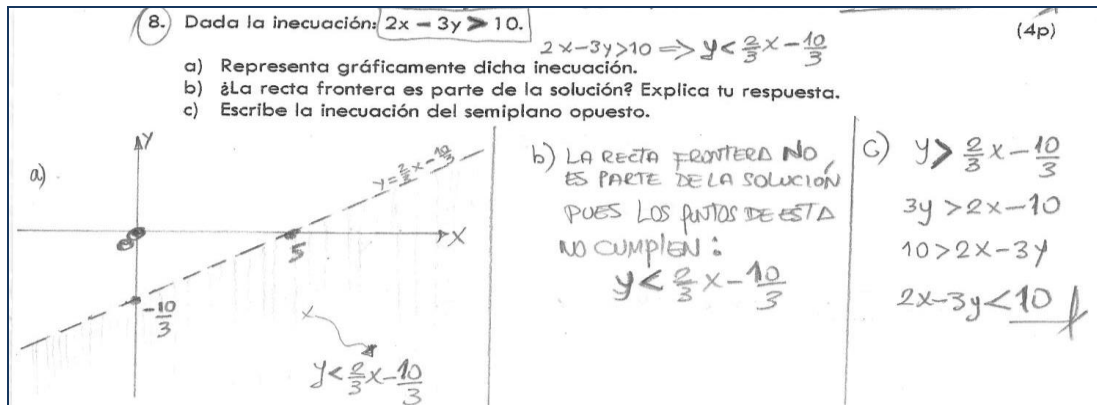 8. Dada la inecuación: 2x - 3y > 10.
(4p)
2x-3y>10 => y < 2/3 x - 10/3
a) Representa gráficamente dicha inecuación.
b) ¿La recta frontera es parte de la solución? Explica tu respuesta.
c) Escribe la inecuación del semiplano opuesto.
a)
Y
y = 2/3 x - 10/3
X
0
5
-10/3
y < 2/3 x - 10/3
b) LA RECTA FRONTERA NO
ES PARTE DE LA SOLUCIÓN
PUES LOS PUNTOS DE ESTA
NO CUMPLEN :
y < 2/3 x - 10/3
C) y > 2/3 x - 10/3
3y > 2x - 10
10 > 2x - 3y
2x - 3y < 10